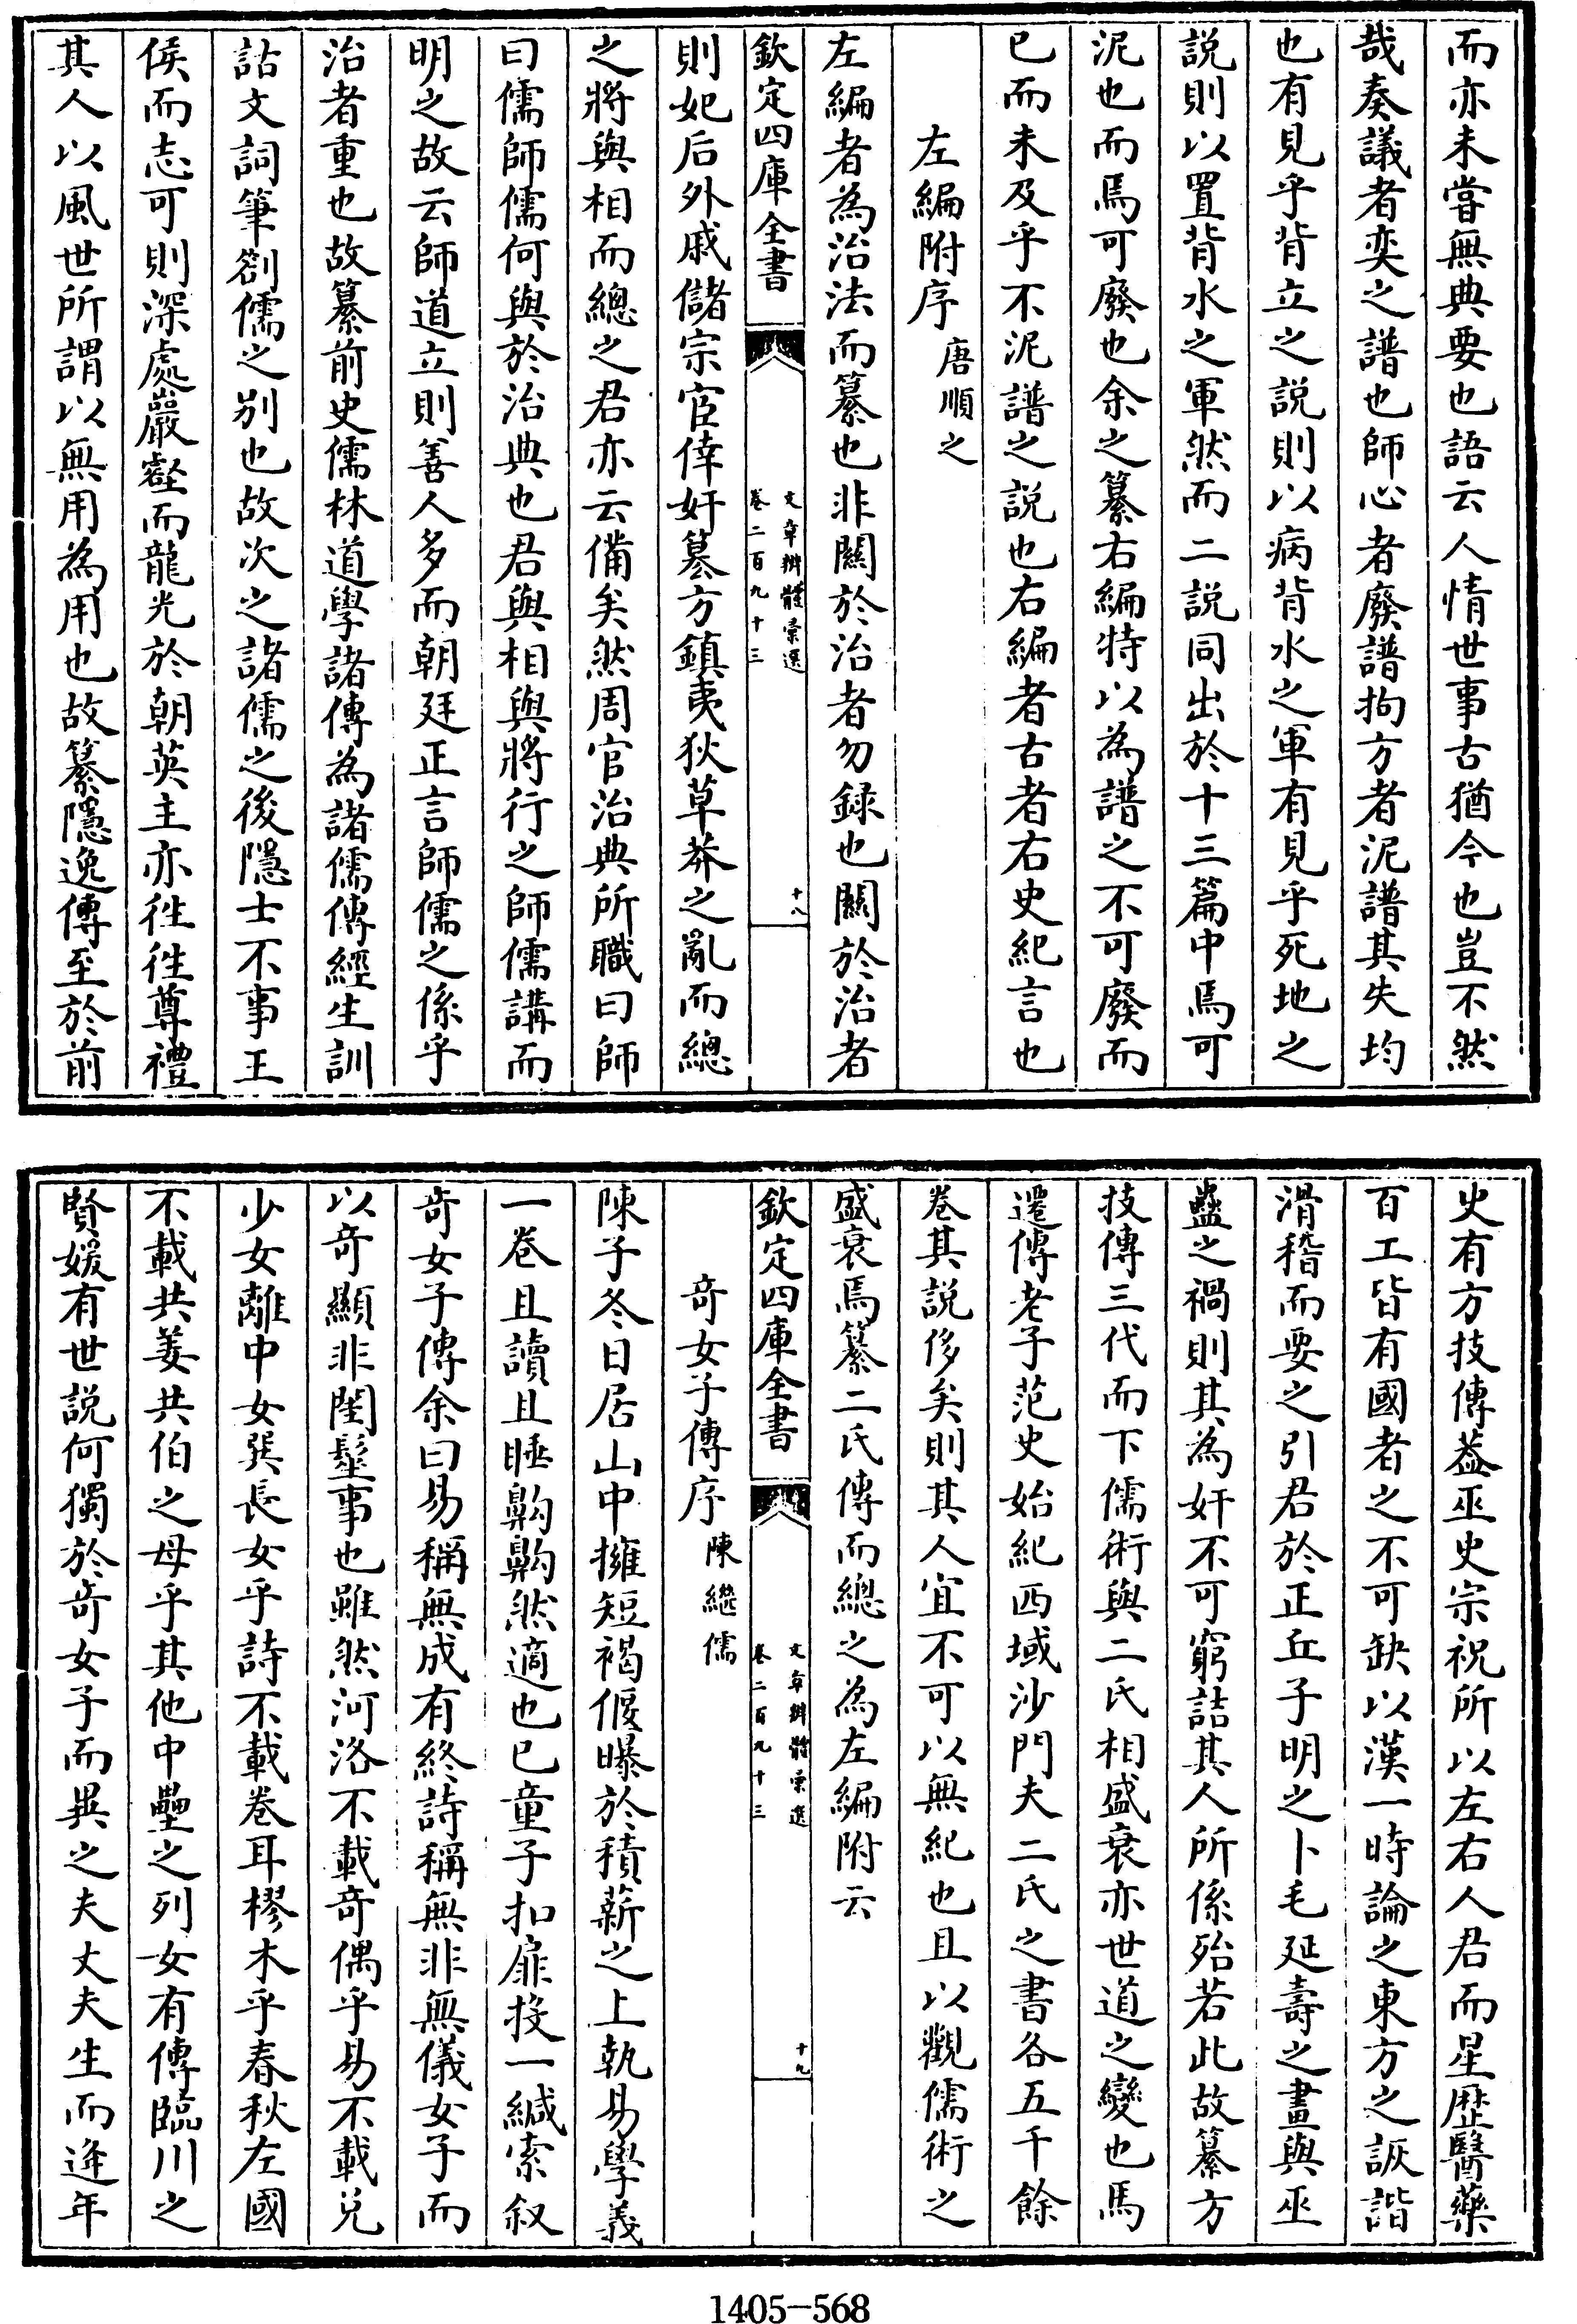 而亦未嘗無典要也語云人情世事古猶今也豈不然
哉奏議者奕之譜也師心者廢譜拘方者泥譜其失均
也有見乎背立之説則以病背水之軍有見乎死地之
説則以置背水之軍然而二説同出於十三篇中焉可
泥也而焉可廢也余之纂右編特以為譜之不可廢而
已而未及乎不泥譜之説也右編者古者右史紀言也
左編附序 唐順之
左編者為治法而纂也非關於治者勿録也關於治者
欽定四庫全書 文章辨體彚選 卷二百九十三 十八
則妃后外戚儲宗宦倖奸簒方鎮夷狄草莽之亂而總
之將與相而總之君亦云備矣然周官治典所職曰師
曰儒師儒何與於治典也君與相與將行之師儒講而
明之故云師道立則善人多而朝廷正言師儒之係乎
治者重也故纂前史儒林道學諸傳為諸儒傳經生訓
詁文詞筆劄儒之别也故次之諸儒之後隱士不事王
侯而志可則深處巖壑而龍光於朝英主亦徃徃尊禮
其人以風世所謂以無用為用也故纂隱逸傳至於前
史有方技傳葢巫史宗祝所以左右人君而星歴醫藥
百工皆有國者之不可缺以漢一時論之東方之詼諧
滑稽而要之引君於正丘子明之卜毛延壽之畫與巫
蠱之禍則其為奸不可窮詰其人所係殆若此故纂方
技傳三代而下儒術與二氏相盛衰亦世道之變也馬
遷傳老子范史始紀西域沙門夫二氏之書各五千餘
卷其説侈矣則其人宜不可以無紀也且以觀儒術之
盛衰焉纂二氏傳而總之為左編附云
欽定四庫全書 文章辨體彚選 卷二百九十三 十九
竒女子傳序 陳繼儒
陳子冬日居山中擁短褐偃曝於積薪之上執易學義
一卷且讀且睡齁齁然適也已童子扣扉投一緘索叙
竒女子傳余曰易稱無成有終詩稱無非無儀女子而
以竒顯非閨髽事也雖然河洛不載竒偶乎易不載兑
少女離中女巽長女乎詩不載卷耳樛木乎春秋左國
不載共姜共伯之母乎其他中壘之列女有傳臨川之
賢媛有世説何獨於竒女子而異之夫丈夫生而逢年
1405—568